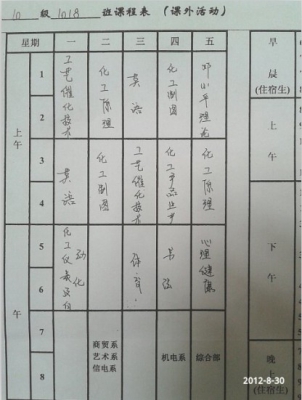 10 级 1018 班课程表 (课外活动)
星期 一 二 三 四 五
上午
1
2
工艺催化技术
化工原理
英语
化工制图
邓小平理论
3
4
英语
化工制图
工艺催化技术
化工原理
午
5
6
化工仪表
动化
体育
书法
心理健康
7
8
商贸系
艺术系
信电系
机电系
综合部
早
晨
(住宿生)
上
午
下
午
晚
上
(住宿生)
2012-8-30